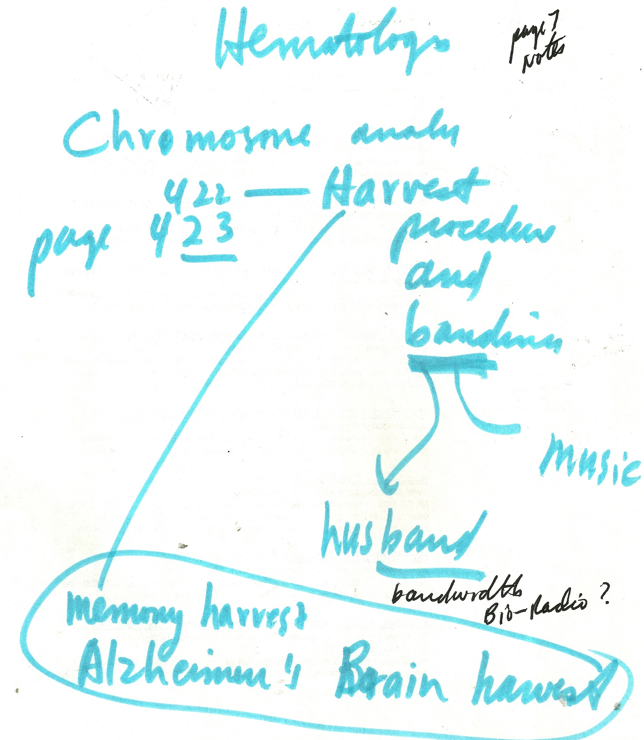 Hematology
page 7
Notes
Chromosome analy
422 — Harvest
page 423
procedure
and
banding
Music
husband
bandwidth
Bio-Radio ?
memory harvest
Alzheimer's Brain harvest